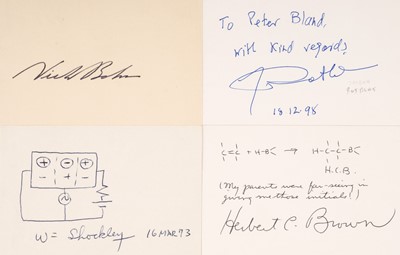 To Peter Bland,
with kind regards
18.12.98
W = Shockley 16 MAR 93
C=C + H-B< → H-C-C-B<
H.C.B.
(My parents were far-seeing in
giving me those initials!)
Herbert C. Brown